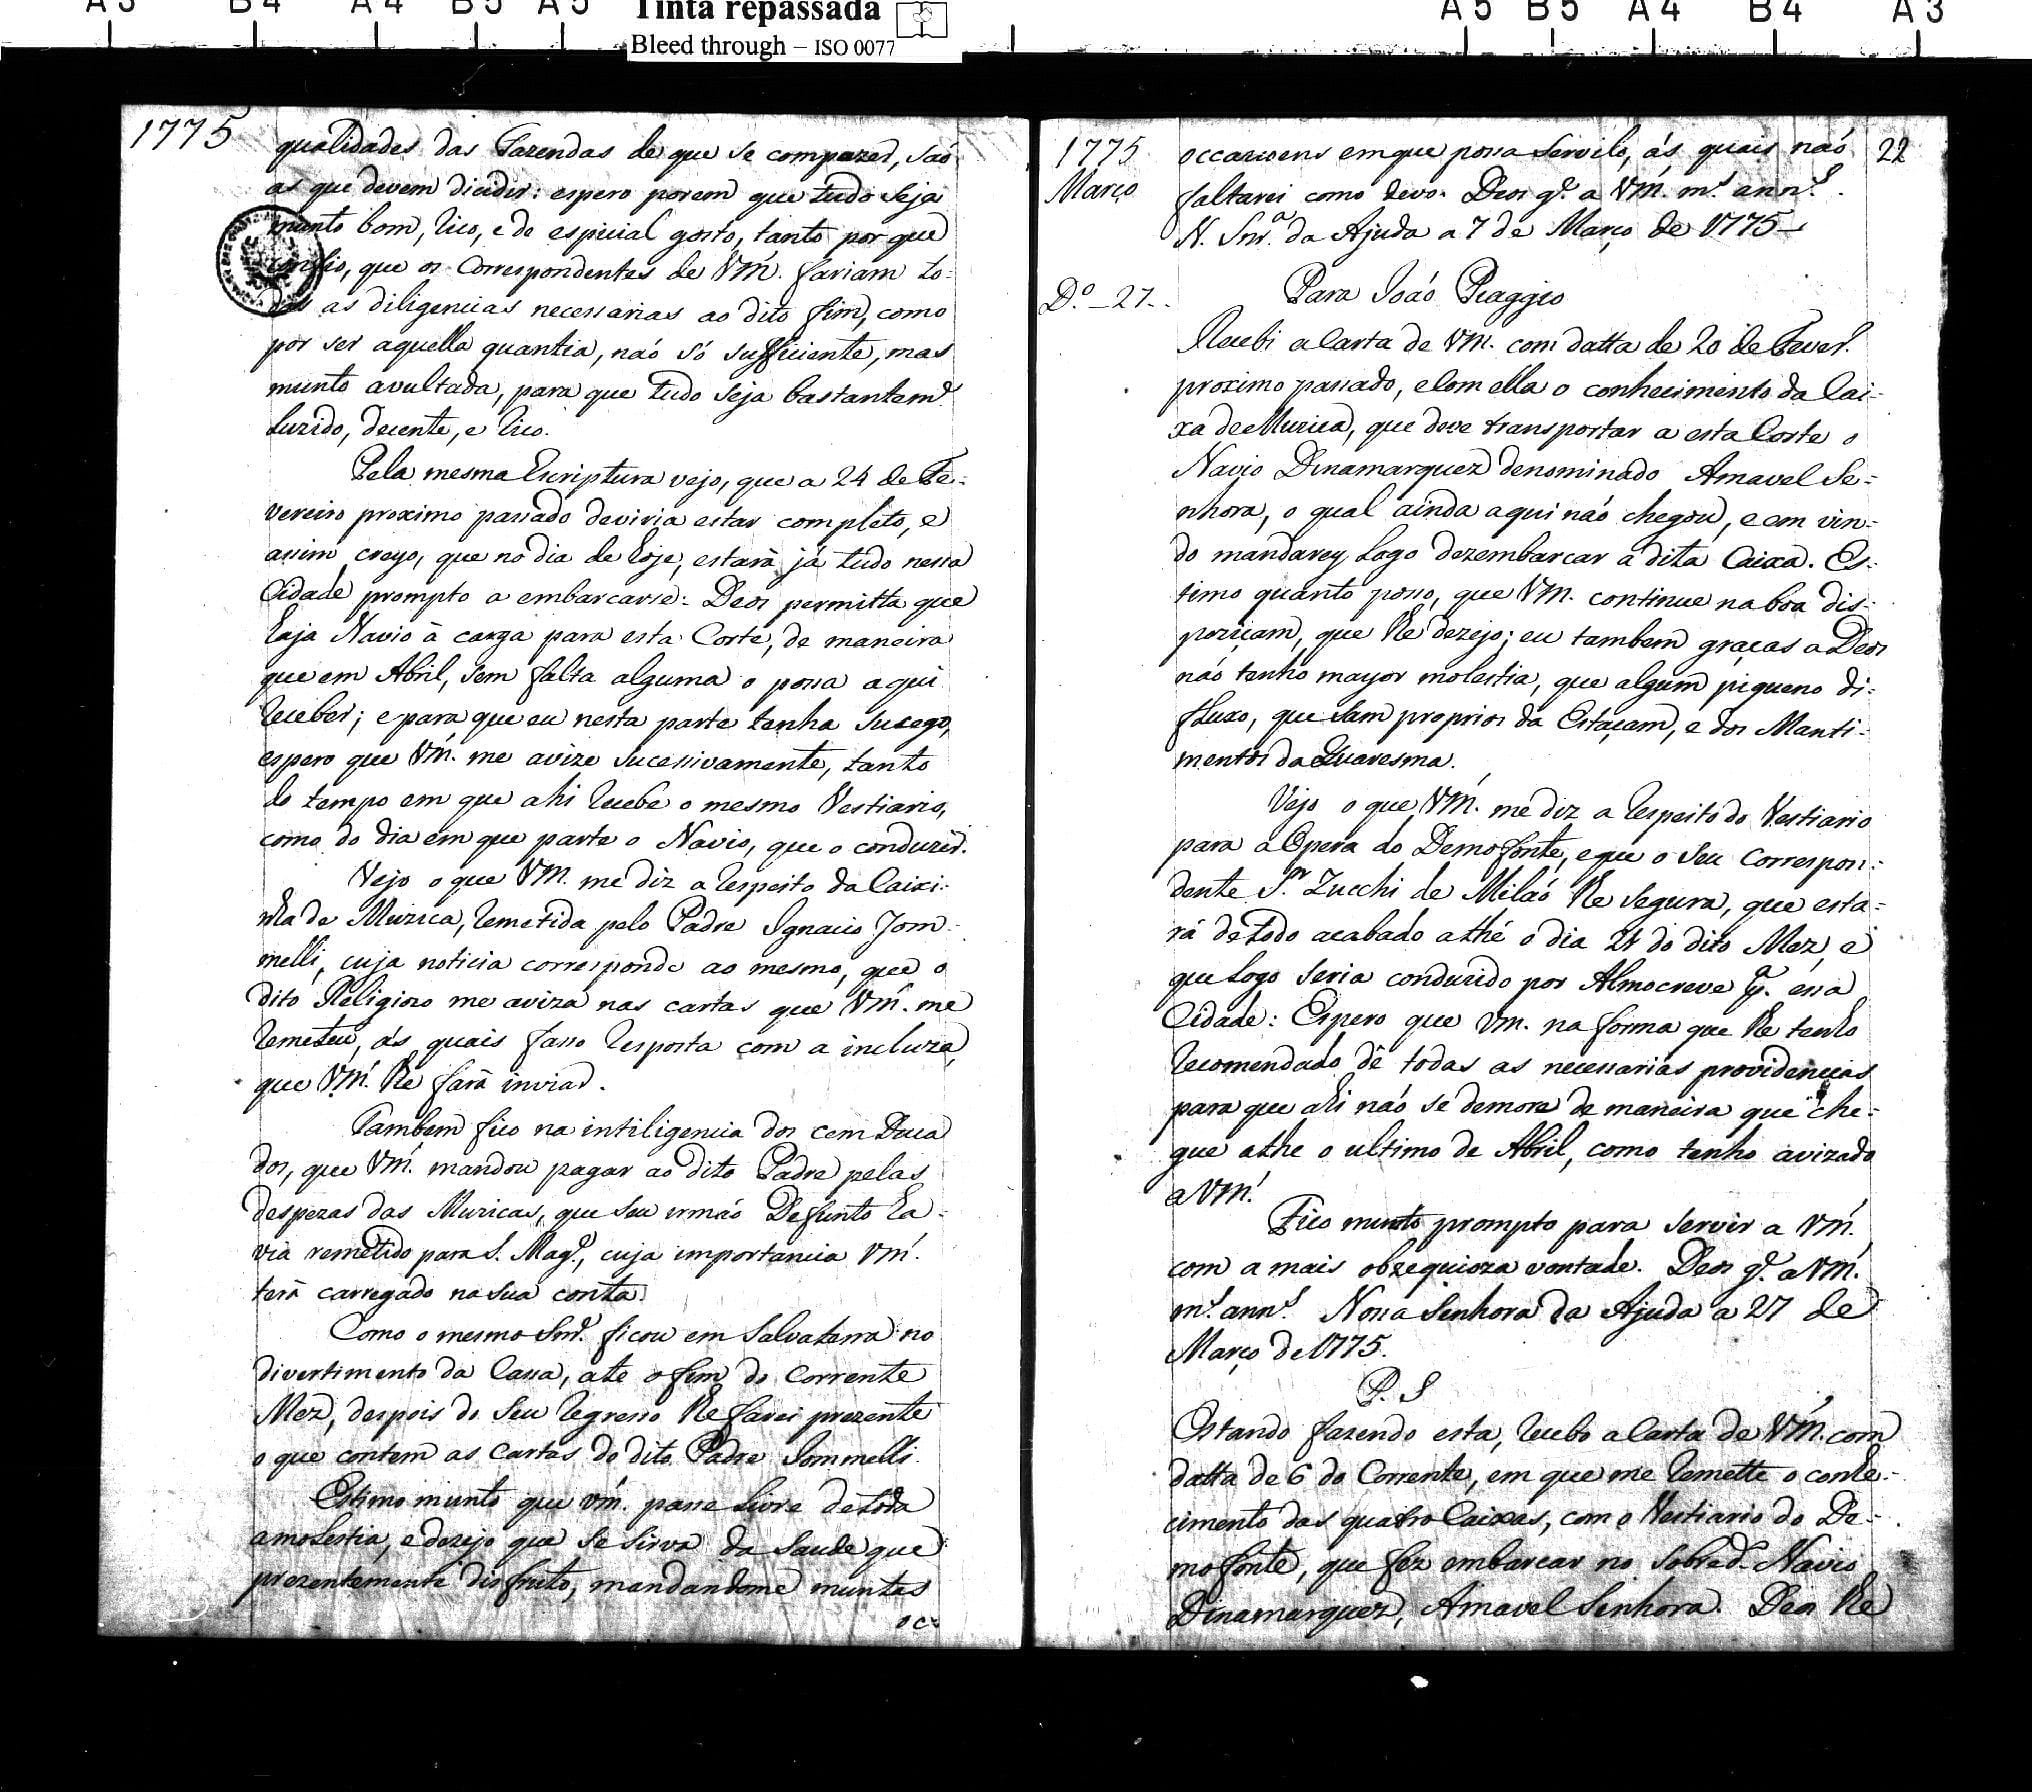 A3 B4 A4 B5 A5 Tinta repassada A5 B5 A4 B4 A3
Bleed through – ISO 0077
1775
qualidades das Fazendas de que se compazer, saó
as que devem dicidir: espero porem que tudo seja
munto bom, rico, e de espicial gosto, tanto por que
confio, que os Correspondentes de VM. fariam to-
das as diligencias necessarias ao dito fim, como
por ser aquella quantia, naó só sufficiente, mas
munto avultada, para que tudo seja bastantemᵉ
Luzido, decente, e rico.
Pela mesma Escriptura vejo, que a 24 de Fe-
vereiro proximo passado deviria estar completo, e
assim creyo, que no dia de hoje, estarà já tudo nessa
Cidade prompto a embarcarse: Deos permitta que
haja Navio à carga para esta Corte, de maneira
que em Abril, sem falta alguma o possa aqui
receber; e para que eu nesta parte tenha sucego,
espero que VM. me avize sucessivamente, tanto
do tempo em que ahi recebe o mesmo Vestiario,
como do dia em que parte o Navio, que o conduzir.
Vejo o que VM. me diz a respeito da Caixi-
nha de Muzica, remetida pelo Padre Ignacio Jom-
melli, cuja noticia corresponde ao mesmo, que o
dito Religiozo me aviza nas cartas que VM. me
remeteu, ás quais fasso resposta com a incluza,
que VM. lhe farà inviar.
Tambem fico na intiligencia dos cem Duca
dos, que VM. mandou pagar ao dito Padre pelas
despezas das Muzicas, que seu irmáo Defunto ha-
via remetido para S. Magᵉ, cuja importancia VM.
terà carregado na sua conta.
Como o mesmo Snrˢ. ficou em Salvaterra no
divertimento da Cassa, ate o fim do Corrente
Mez, despois do seu regresso lhe farei prezente
o que contem as Cartas do dito Padre Jommelli.
Estimo munto que VM. passe livre de toda
a molestia, e dezejo que se sirva da saude que
prezentemente disfruto, mandandome muntas
oc-
1775
Março
22
occazioens emque possa servilo, ás quais naó
faltarei como devo. Deos gᵉ. a VM. mˢ. annˢ.
N. Snrᵃ. da Ajuda a 7 de Março de 1775
Dº. 27.
Para Joáo Piaggio
Recebi a Carta de VM. com datta de 20 de Feverº.
proximo passado, e com ella o conhecimento da Cai-
xa de Muzica, que deve transportar a esta Corte o
Navio Dinamarquez denominado Amavel Se-
nhora, o qual ainda aqui náo chegou, e em vin-
do mandarey logo dezembarcar a dita Caixa. Es-
timo quanto posso, que VM. continue na boa dis-
poziçam, que lhe dezejo; eu tambem graças a Deos
náo tenho mayor molestia, que algum piqueno di-
fluxo, que sam proprios da Estaçam, e dos Manti-
mentos da Quaresma.
Vejo o que VM. me diz a respeito do Vestiario
para a Opera do Demofonte, e que o seu correspon-
dente Sʳ. Zucchi de Miláo lhe segura, que esta-
rá de todo acabado athé o dia 28 do dito Mez, e
que logo seria conduzido por Almocreve pª. essa
Cidade: Espero que VM. na forma que lhe tenho
recomendado dê todas as necessarias providencias
para que ahi náo se demore de maneira que che-
gue athe o ultimo de Abril, como tenho avizado
a VM.
Fico munto prompto para servir a VM.
com a mais obzequioza vontade. Deos gᵉ. a VM.
mˢ. annˢ. Nossa Senhora da Ajuda a 27 de
Março de 1775.
P. S
Estando fazendo esta, recebo a Carta de VM. com
datta de 6 do Corrente, em que me remette o conhe-
cimento das quatro Caixas, com o Vestiario do De-
mofonte, que fez embarcar no sobredº. Navio
Dinamarquez, Amavel Senhora. Deos lhe